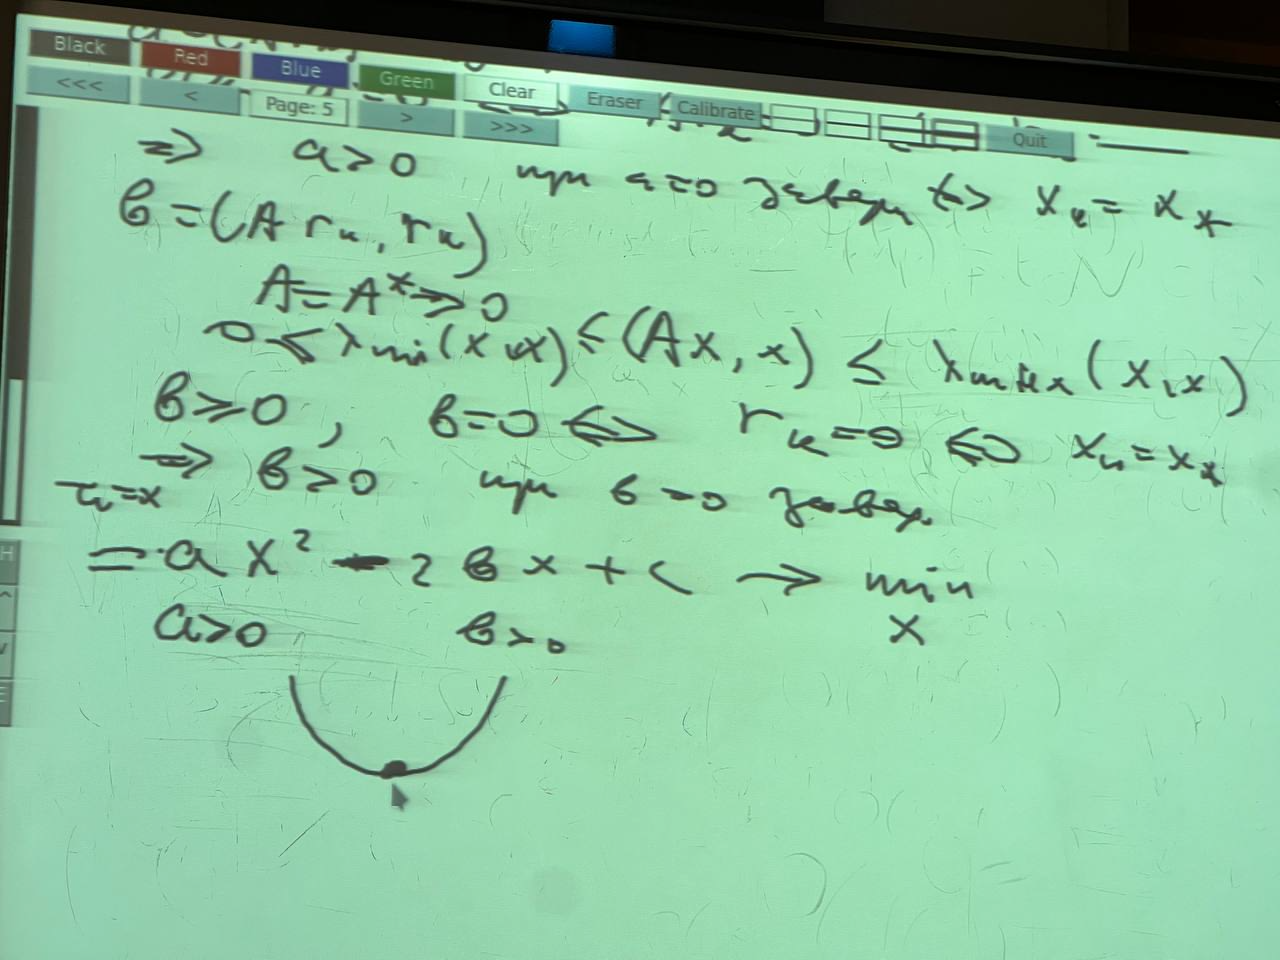 Black Red Blue Green Clear Eraser Calibrate Quit
<<< < Page: 5 > >>>
⇒ a > 0 при a = 0 завер ⇔ x_k = x_*
b = (A r_k, r_k)
A = A* > 0
0 ≤ λ_min (x, x) ≤ (Ax, x) ≤ λ_max (x, x)
b ≥ 0, b = 0 ⇔ r_k = 0 ⇔ x_k = x_*
⇒ b > 0 при b = 0 завер.
τ_k = x
= a x² - 2 b x + c → min
a > 0 b > 0 x